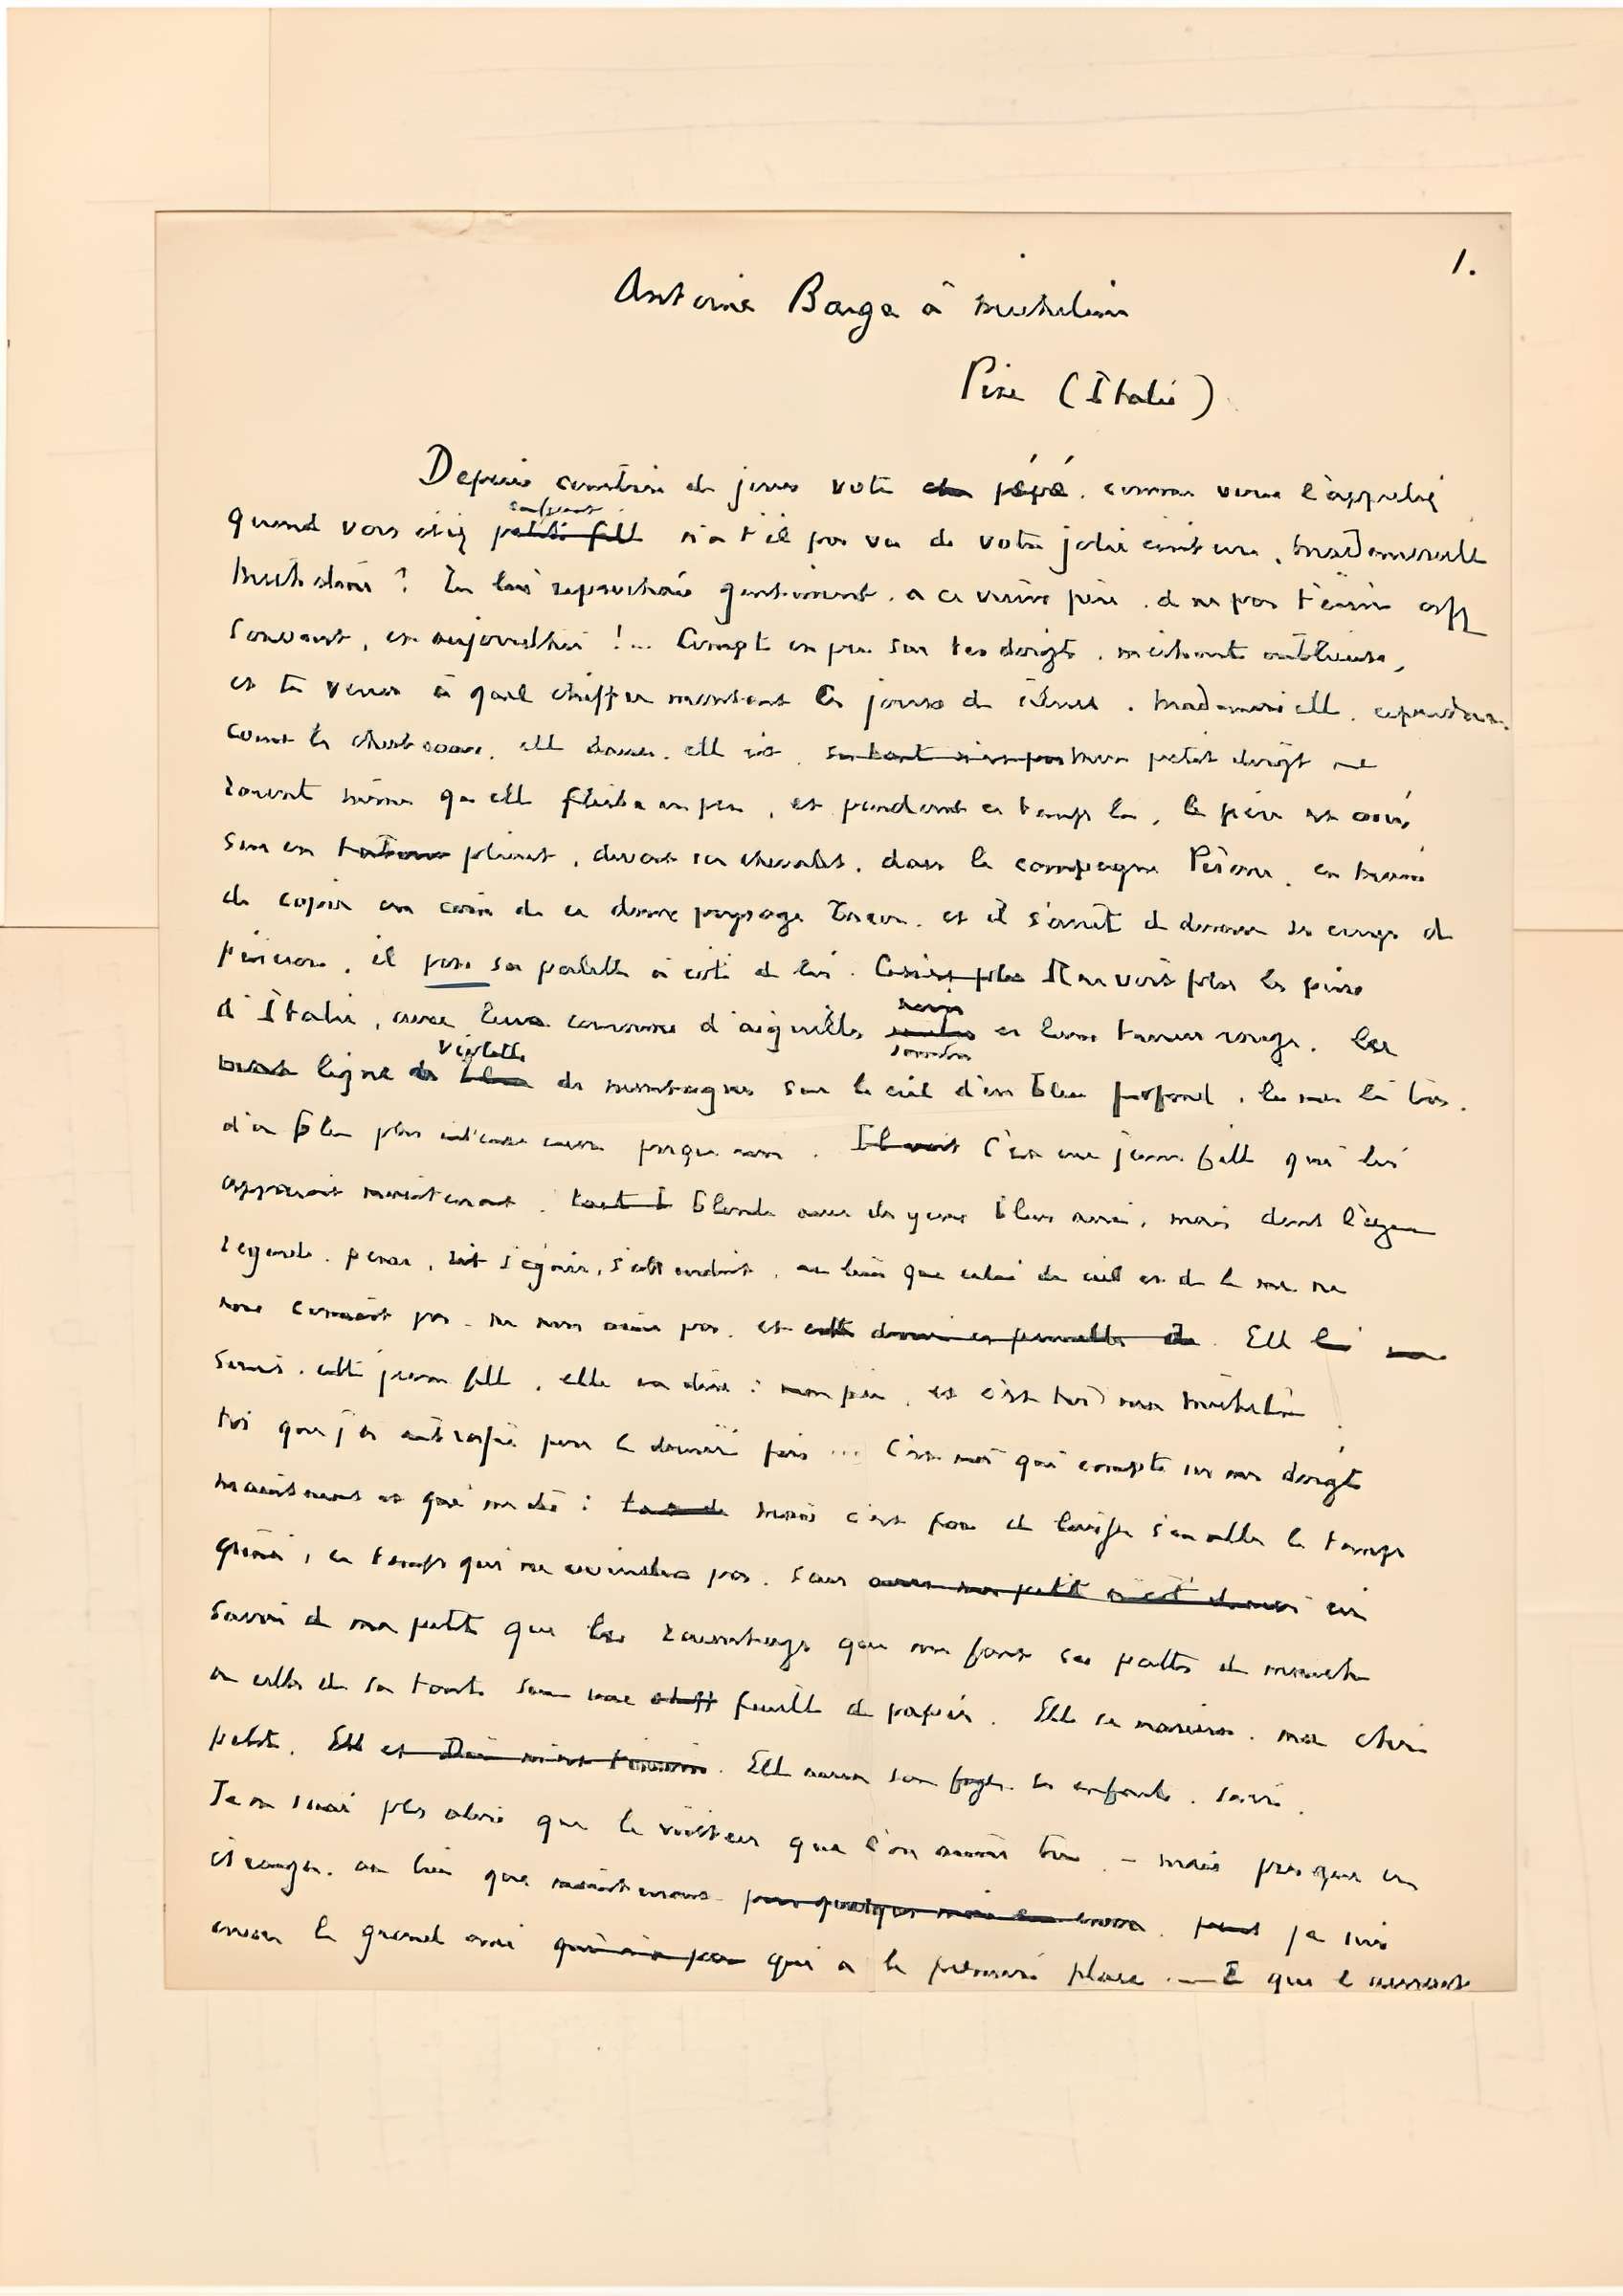 1.
Antoine Barge à Micheline
Pise (Italie)
Depuis combien de jours votre pépé, comme vous l'appeliez
quand vous étiez petite fille n'a t'il pas vu de votre jolie écriture, Mademoiselle
Micheline ? Tu lui reprochais gentiment, à ce vieux père, de ne pas t'écrire assez
souvent, et aujourd'hui !... Compte un peu sur tes doigts, méchante oublieuse,
et tu verras à quel chiffre montent les jours de silence. Mademoiselle, cependant,
court les chateaux, elle danse, elle rit, mon petit doigt me
raconte même qu'elle flirte un peu, et pendant ce temps là, le père est assis
sur un pliant, devant son chevalet, dans la campagne Pisane, en train
de copier un coin de ce paysage Toscan, et il s'arrête de donner des coups de
pinceau, il pose sa palette à côté de lui. Il ne voit plus les pins
d'Italie, avec leurs couronnes d'aiguilles sombres et leurs troncs rouges, la
ligne violette des montagnes sur le ciel d'un bleu profond, la mer là bas,
d'un bleu plus intense encore presque noir. Il voit C'est une jeune fille qui lui
apparait maintenant, tout b blonde avec des yeux bleus aussi, mais dont l'azur
regarde, pense, rit s'égaie, s'attendrit, au lieu que celui du ciel et de la mer ne
nous connait pas, ne nous aime pas, et Elle
sourit, cette jeune fille, elle me dit : mon père, et c'est toi ma Micheline
toi que j'ai autrefois pour la dernière fois ... C'est moi qui compte sur mes doigts
maintenant et qui me dis : mais c'est fou de laisser s'en aller le temps
ainsi, ce temps qui ne reviendra pas, sans avoir ma petite à côté de moi
savoir de ma petite que les racontages que me font ses pattes de mouche
ou celles de sa tante sur une feuille de papier. Elle se mariera, ma chère
petite. Elle aura son foyer, ses enfants, sa vie.
Je ne serai plus alors que le visiteur que l'on aime bien - mais presque un
étranger, au lieu que maintenant je suis
encore le grand ami qui a la première place. -